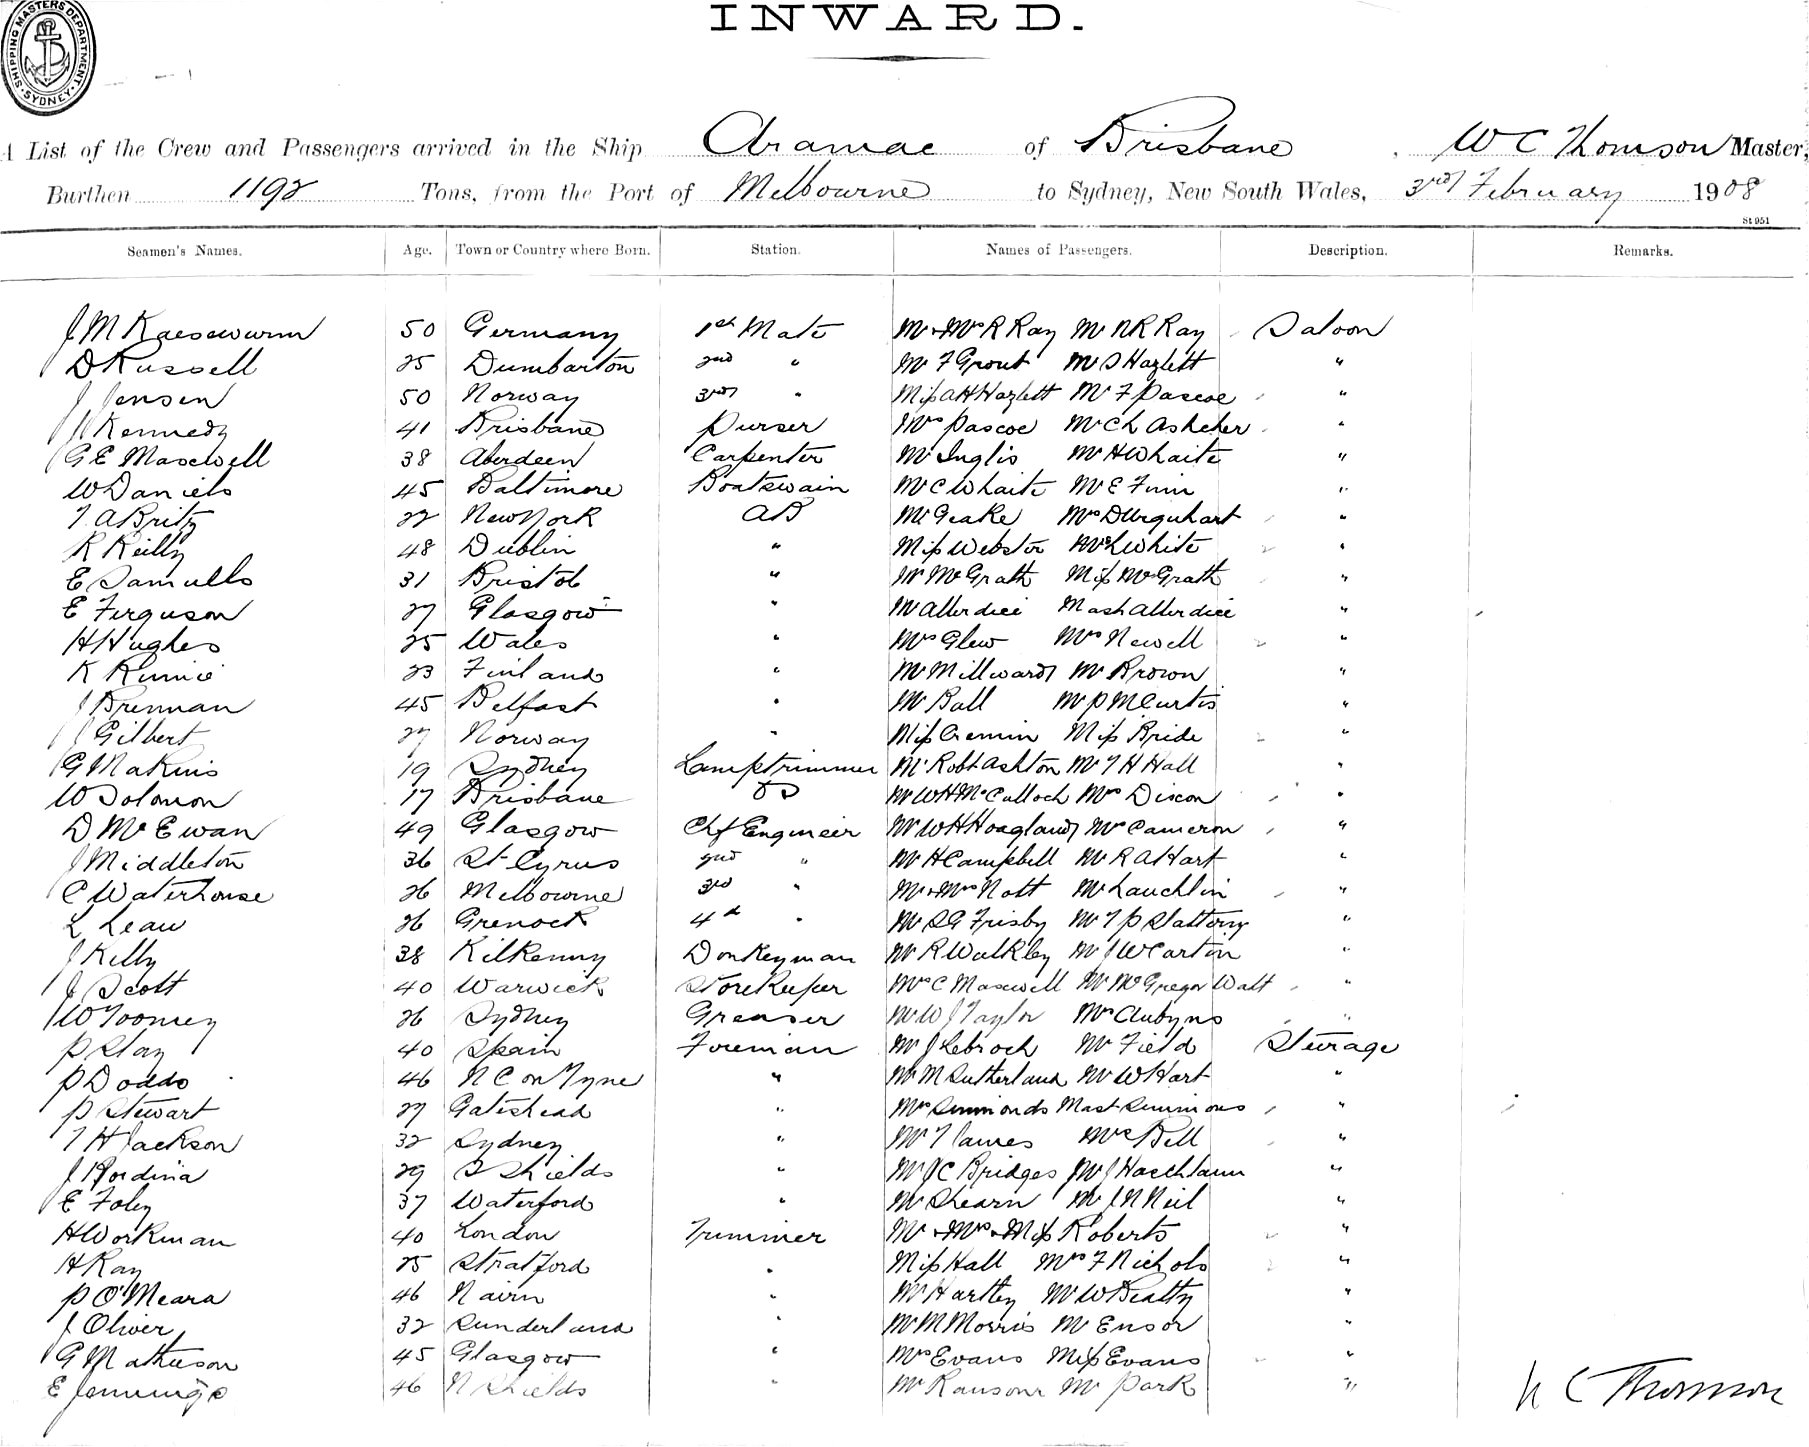 SHIPPING MASTERS DEPARTMENT. SYDNEY.
INWARD.
A List of the Crew and Passengers arrived in the Ship Aramac of Brisbane, W C Thomson Master,
Burthen 1192 Tons, from the Port of Melbourne to Sydney, New South Wales, 3rd February 1908
St 951
Seamen's Names. Age. Town or Country where Born. Station. Names of Passengers. Description. Remarks.
J M Kaesewurm 50 Germany 1st Mate Mr & Mrs R Ray Mr N R Ray Saloon
D Russell 25 Dumbarton 2nd " Mr F Grout Mr S Hazlett "
J Jensen 50 Norway 3rd " Miss A H Hazlett Mr F Pascoe "
J Kennedy 41 Brisbane Purser Mrs Pascoe Mr Ch Ashcher "
G E Maxwell 38 Aberdeen Carpenter Mr Inglis Mr H Whaite "
W Daniels 45 Baltimore Boatswain Mr C Whaite Mr E Finn "
T A Britz 22 New York AB Mr Geake Mrs D Urquhart "
R Reilly 48 Dublin " Miss Webster Mrs L White "
E Samuells 31 Bristol " Mr McGrath Miss McGrath "
E Ferguson 27 Glasgow " Mr Allerdice Mast Allerdice "
H Hughes 25 Wales " Mrs Glew Mrs Newell "
K 23 Finland " Mr Millward Mr Brown "
J Brennan 45 Belfast " Mr Ball Mr P M Curtis "
J Gilbert 27 Norway " Miss Cremin Miss Bride "
G Makins 19 Sydney Lamptrimmer Mr Robt Ashton Mr T H Hall "
W Solomon 17 Brisbane Do Mr W H McCulloch Mrs Dixon "
D McEwan 49 Glasgow Chf Engineer Mr W H Hoagland Mr Cameron "
J Middleton 36 St Cyrus 2nd " Mr H Campbell Mr R A Hart "
C Waterhouse 26 Melbourne 3rd " Mr & Mrs Nott McLauchlin "
L Leau 26 Grenock 4th " Mr S G Frisby Mr T P Slattery "
J Kelly 38 Kilkenny Donkeyman Mr R Walkley Mr J W Carton "
J Scott 40 Warwick Storekeeper Mrs C Maxwell Mr McGregor Walt "
W Toomey 26 Sydney Greaser Mr W J Taylor Mrs Aubyns "
P Slay 40 Spain Foreman Mr J Lebroch Mr Field Steerage
P Dodds 46 N C on Tyne " Mr M Sutherland Mr W Hart "
P Stewart 27 Gateshead " Mrs Simmonds Mast Simmons "
T H Jackson 32 Sydney " Mr T James Mrs Bell "
J Bordina 29 S Shields " Mr J C Bridges Mr J "
E Foley 37 Waterford " Mr Shearn Mr J N Neil "
H Workman 40 London Trimmer Mr & Mrs & Miss Roberts "
H Ray 25 Stratford " Miss Hall Mrs F Nichols "
P O'Meara 46 Nairn " Mr Hartley Mr W Beatty "
J Oliver 32 Sunderland " Mr M Morris Mr Ensor "
G Mathieson 45 Glasgow " Mrs Evans Miss Evans "
E Jennings 46 N Shields " Mr Ransom Mr Park "
W C Thomson